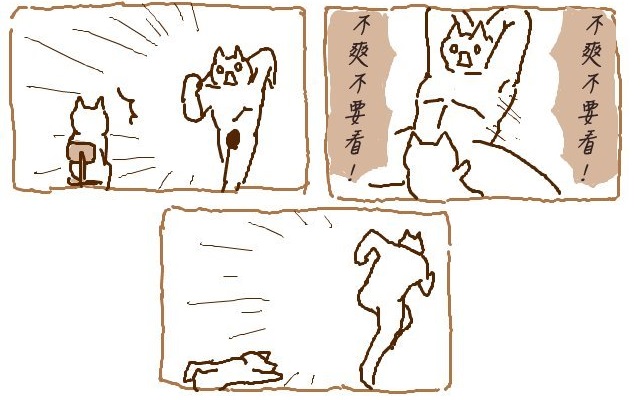 不爽不要看!
不爽不要看!